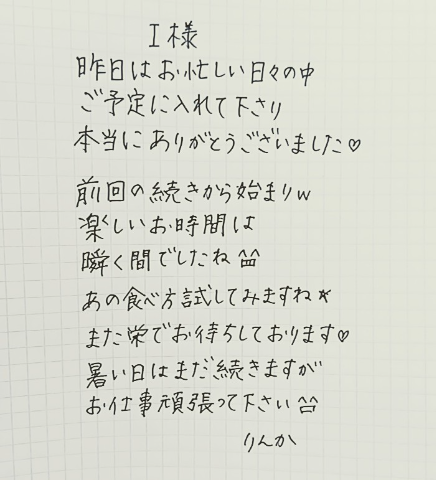 I様
昨日はお忙しい日々の中
ご予定に入れて下さり
本当にありがとうございました♡
前回の続きから始まりw
楽しいお時間は
瞬く間でしたね
あの食べ方試してみますね★
また栄でお待ちしております♡
暑い日はまだ続きますが
お仕事頑張って下さい
りんか